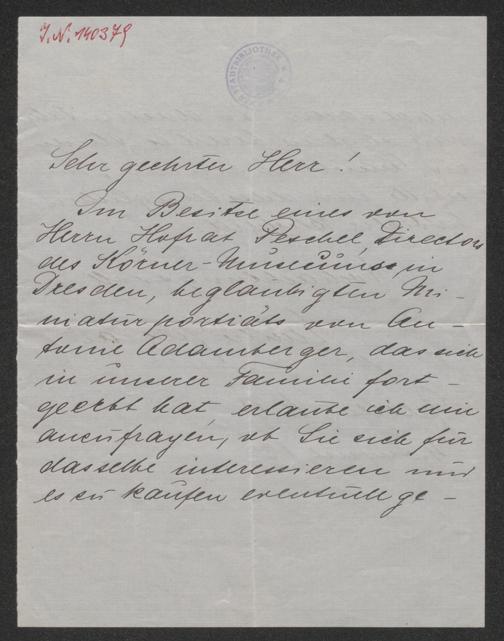 J. N. 140379
STADTBIBLIOTHEK
Sehr geehrter Herr!
Im Besitze eines von
Herrn Hofrat Peschel, Directors
des Körner-Museums, in
Dresden, beglaubigten Mi-
niaturporträts von An-
tonie Adamberger, das sich
in unserer Familie fort-
geerbt hat, erlaube ich mir
anzufragen, ob Sie sich für
dasselbe interessieren und
es zu kaufen eventuell ge-